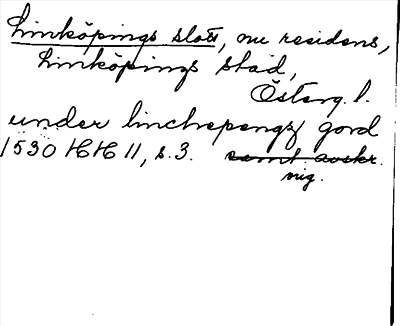 Linköpings slott, nu residens,
Linköpings stad,
Österg. l.
under linchepengx gord
1530 HH 11, s. 3. samt avskr.